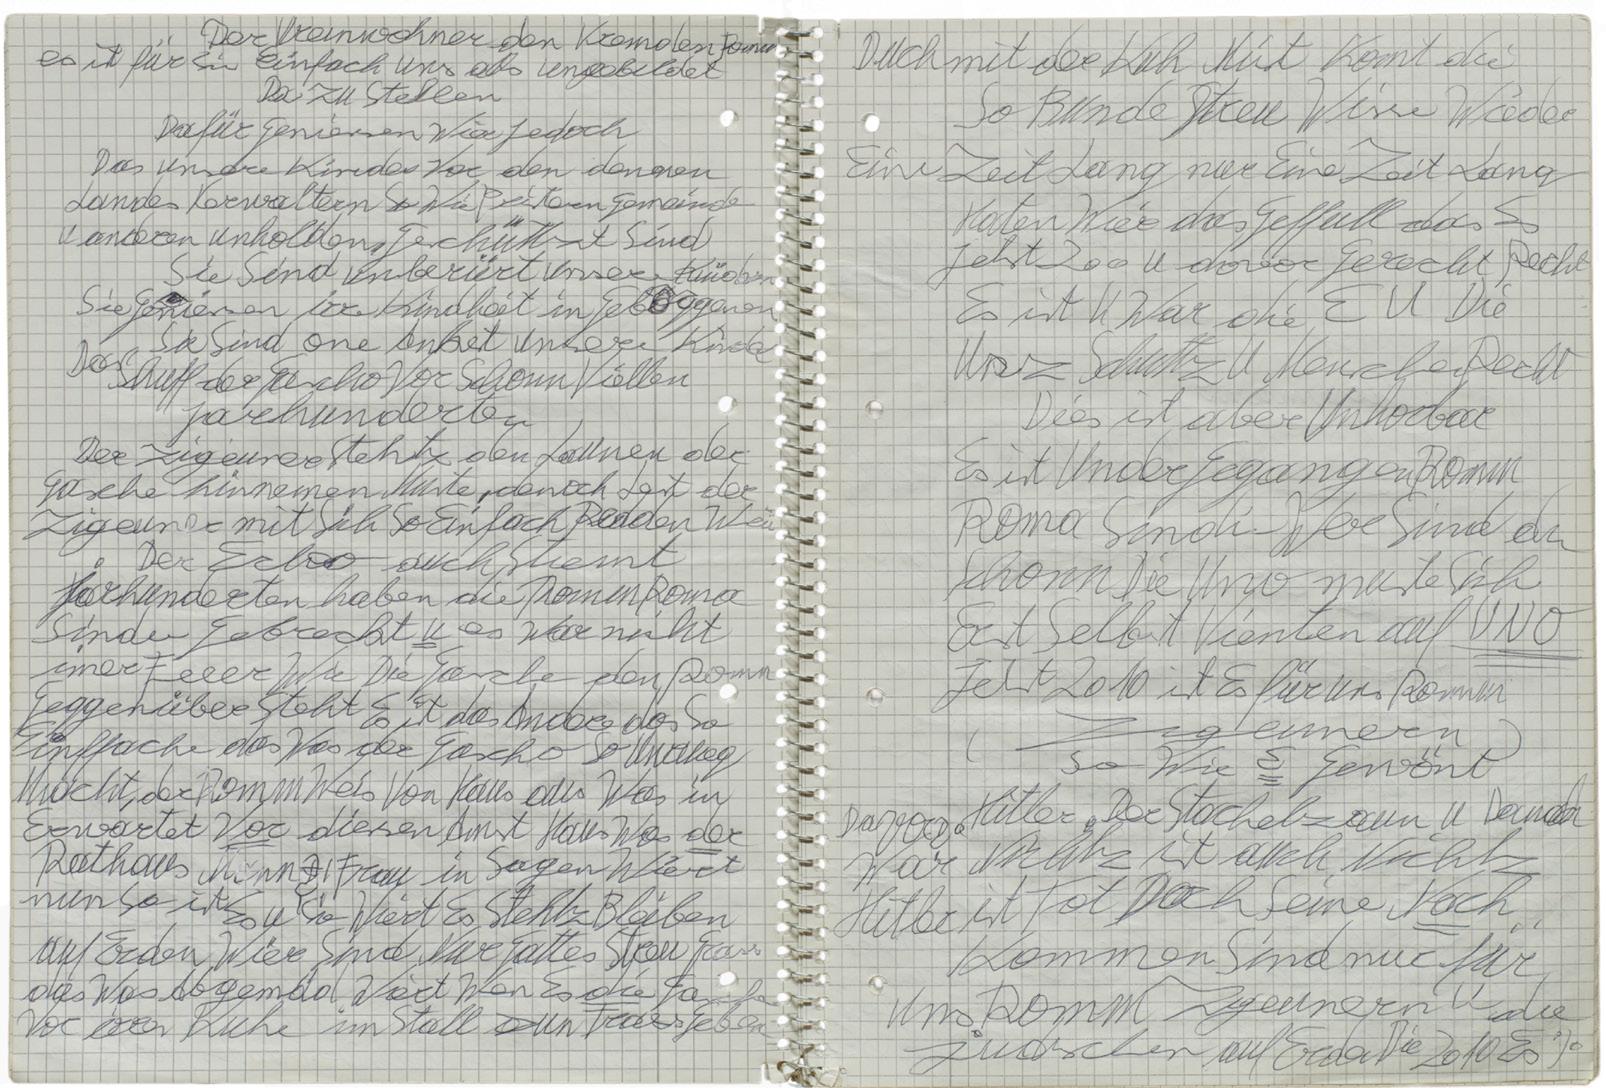 Der Ureinwohner den Fremden Romm
es ist für sie Einfach uns als ungebildet
Da zu stellen
Dafür geniersen Wier Jedoch
Das unsere Kinder Vor den denoen
Landes Verwaltern So Wie Gemeinde
u anderen unholden, geschüttzt Sind
Sie Sind unberürt unsere Kinder
Sie Geniersen ire Kindheit in Geboggenen
Sie Sind one Anbeit unsere Kinder
Das Schuff der Gascho Vor Schonn Viellen
jarhunderten
Der Zigeuner Stehtz den Launen der
Gasche hinnemen Muste, denoch Lest der
Zigeuner mit Sich So Einfach Reden Weil
Der auch Stiemt
Jarhunderten haben die Romm Roma
Sindu Gebracht u es War nicht
imer Feeer Wie Die Gasche den Romm
Geggenüber Steht Es ist das Andere das So
Einffache das Was der Gascho So Unruhig
Macht, der Romm Weis Von Haus aus Was in
Erwartet Vor diesen Amst Haus Was der
Rathaus Mann u Frau in Sagen Wiert
nun So ist Es u So Wiert Es Stehtz Bleiben
auf Erden Wier Sind Nur Gattes Streu Gras
das Was Abgemäd Wiert Wen Es die Gasche
Vor iren Kuhe im Stall zun Frass Geben
Duch mit der Kuh Mist Komt die
So Runde Streu Wisse Wieder
Eine Zeit Lang nur Eine Zeit Lang
Haten Wier das Geffull das Es
Jetst 200 u davor Gerecht Recht
Es ist u War die EU Die
Uns z Schuttz u Menschen Recht
Dies ist aber Unhorbar
Es ist Under Gegangen Romm
Roma Sindi Wer Sind di
Schonn Die Uno muste Sich
Erst Selbst Vienten auf UNO
Jetst 2010 ist Es für uns Romm
( Zigeunern )
So Wie Es Gewönt
Davor, Hitler, Der Stachelzaun u
War Nichtz ist auch Nichtz
Hitler ist Tot Doch Seine Nach
Kommen Sind nur für
uns Romm Zigeunern u die
jüdischen auf Erden Die 2010 Es